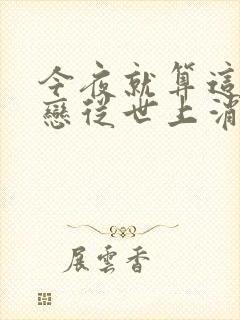 今夜就算這
戀從世上消
展雲香